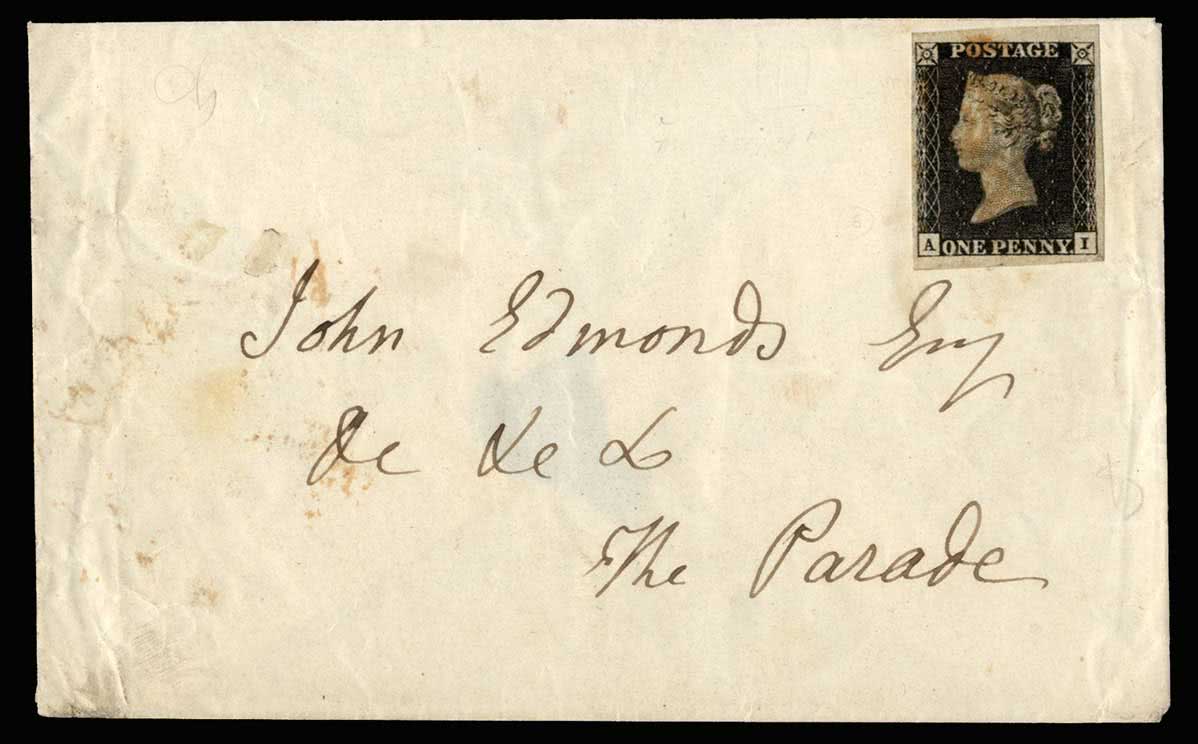 POSTAGE
A ONE PENNY. I
John Edmonds Esq
&c &c &
The Parade